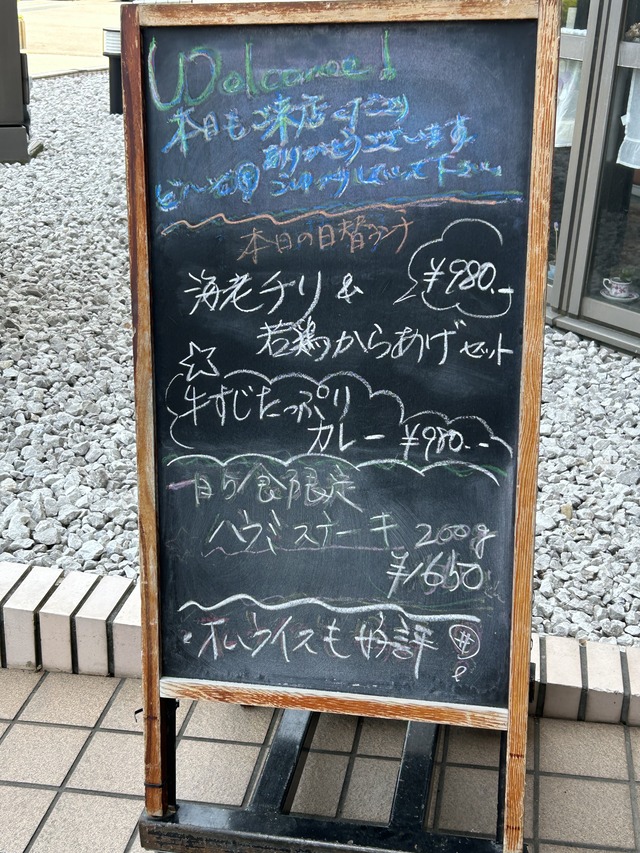 Welcome!
本日もご来店下さり
ありがとうございます
どうぞごゆっくりしていって下さい。
本日の日替ランチ
海老チリ & ¥980.-
若鶏からあげセット
☆
牛すじたっぷり
カレー ¥980.-
一日5食限定
ハラミステーキ 200g
¥1650
・オムライスも好評